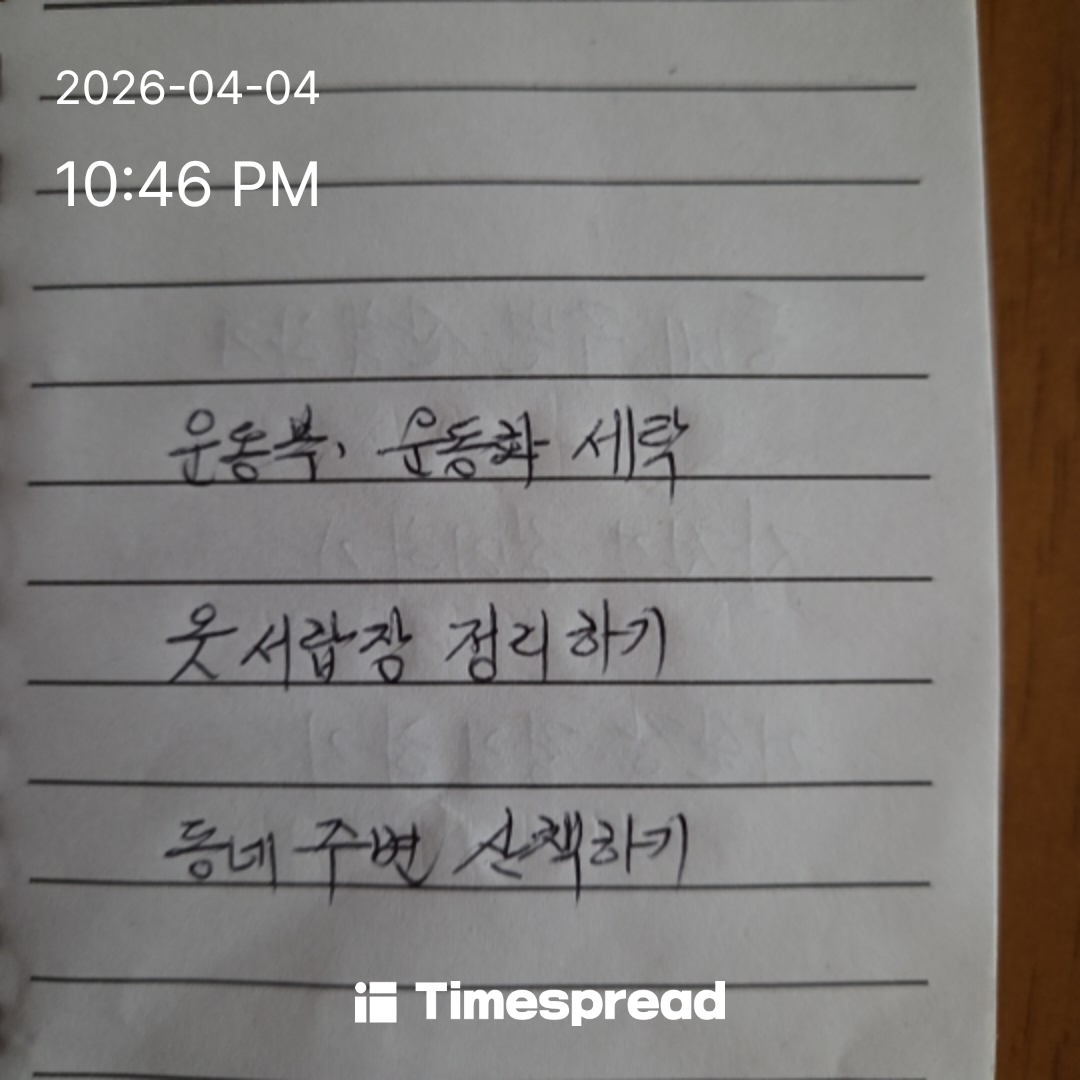 2026-04-04
10:46 PM
운동복, 운동화 세탁
옷서랍장 정리하기
동네 주변 산책하기
Timespread